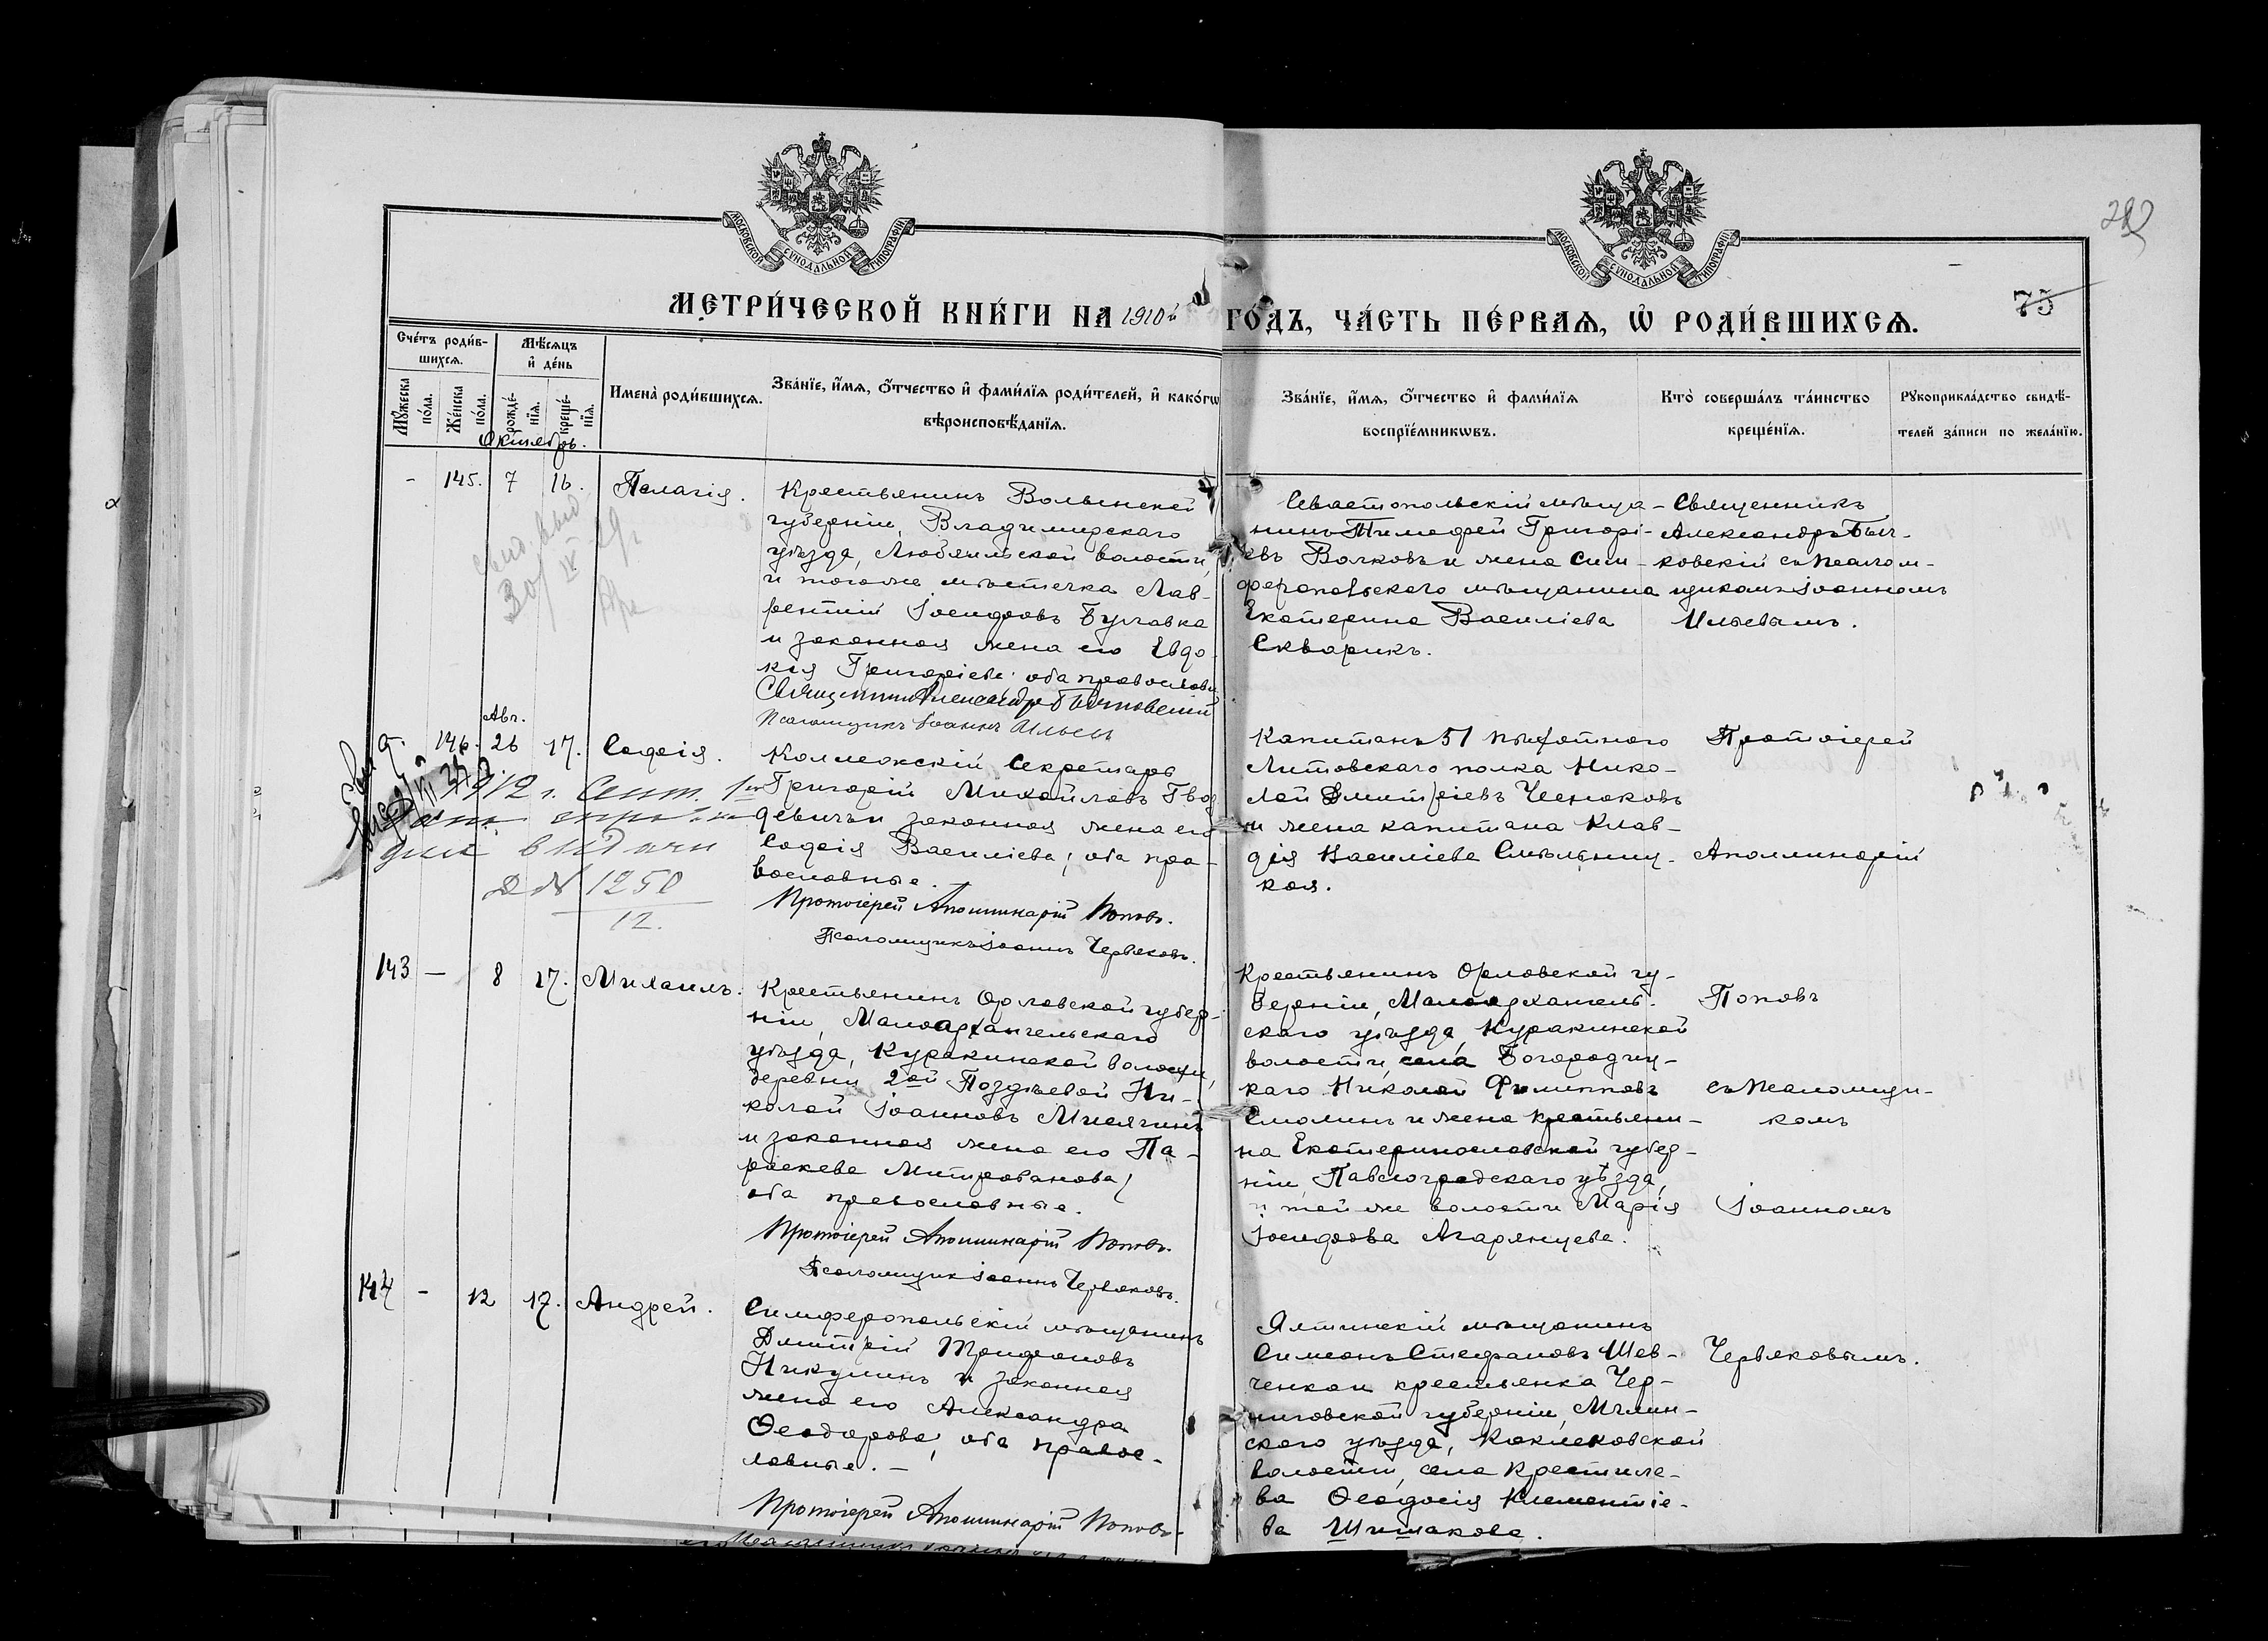 МОСКОВСКОЙ СУНОДАЛЬНОЙ ТИПОГРАФІИ
МОСКОВСКОЙ СУНОДАЛЬНОЙ ТИПОГРАФІИ
75
МЕТРИ́ЧЕСКОЙ КНИ́ГИ НА 1910й ГО́ДЪ, ЧА́СТЬ ПЕ́РВАѦ, Ѡ РОДИ́ВШИХСѦ.
Сче́тъ роди́в-
шихсѧ.
Мѣ́сѧцъ
и҆ де́нь
Мꙋ́жеска
по́ла.
Же́нска
по́ла.
рожде́-
нїѧ.
креще́-
нїѧ.
Имена̀ роди́вшихсѧ.
Зва́нїе, и҆́мѧ, ѻ҆́тчество и҆ фами́лїѧ роди́телей, и҆ како́гѡ
вѣроисповѣ́данїѧ.
Зва́нїе, и҆́мѧ, ѻ҆́тчество и҆ фами́лїѧ
воспрїе́мникѡвъ.
Кто̀ соверша́лъ та́инство
креще́нїѧ.
Рꙋкоприкла́дство свидѣ́-
телей за́писи по жела́нїю.
Октябрь.
- 145. 7 16. Пелагія.
Крестьянинъ Волынской
губерніи, Владимирскаго
уѣзда, Любомльской волости,
и тогоже мѣстечка Лав-
рентій Іосифовъ Булавка
и законная жена его Евдо-
кія Григоріева; оба православн
Священникъ Александръ Бычковскій
Псаломщикъ Іоаннъ Ильинъ
Севастопольскій мѣща-
нинъ Тимофей Григорі-
евъ Волковъ и жена Сим-
феропольского мѣщанина
Екатерина Василіева
Скварикъ.
Священникъ
Александръ Быч-
ковскій съ псалом-
щикомъ Іоанномъ
Ильевымъ.
Авг.
146. 26 17. Софія.
Коллежскій Секретарь
Григорій Михайловъ Гвоз
девичъ и законная жена его
Софія Василіева; оба пра-
вославные.
Протоіерей Аполлинарій Поповъ.
Псаломщикъ Іоаннъ Червяковъ.
1912 г. Сент. 1
для выдачи
№ 1250
12.
Капитанъ 51 пѣхотного
Литовскаго полка Нико-
лай Дмитріевъ Чесноковъ
и жена капитана Клав-
дія Василіева Смѣльниц-
кая.
Протоіерей
Аполлинарій
143 — 8 17. Михаилъ.
Крестьянинъ Орловской губер-
ніи, Малоархангельскаго
уѣзда, Куракинской волости,
деревни 2ой Поздѣевой Ни-
колай Іоанновъ Мисячинъ
и законная жена его Па-
раскева Митрофанова;
оба православные.
Протоіерей Аполлинарій Поповъ.
Псаломщикъ Іоаннъ Червяковъ.
Крестьянинъ Орловской гу-
берніи, Малоархангель-
скаго уѣзда, Куракинской
волости, села Богородиц-
каго Николай Филипповъ
Смолинъ и жена крестьяни-
на Екатеринославской губер-
ніи, Павлоградскаго уѣзда,
и той же волости Марія
Іосифова Агарянцева.
Поповъ
съ псаломщи-
комъ
Іоанномъ
144 - 12 17. Андрей.
Симферопольскій мѣщанинъ
Дмитрій Трифоновъ
Никулинъ и законная
жена его Александра
Ѳеодорова; оба правос-
лавные. —
Протоіерей Аполлинарій Поповъ.
Ялтинскій мѣщанинъ
Симеонъ Стефановъ Шев-
ченко и крестьянка Чер-
ниговской губерніи, Мглин-
скаго уѣзда,
волости, села Крестиле-
ва Ѳеодосія Клементіе-
ва Шишакова.
Червяковымъ.